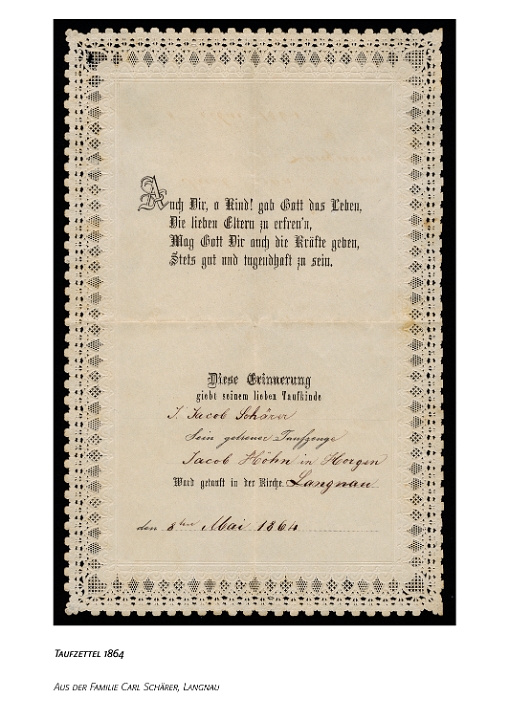 Auch Dir, o Kind! gab Gott das Leben,
Die lieben Eltern zu erfreu'n,
Mag Gott Dir auch die Kräfte geben,
Stets gut und tugendhaft zu sein.
Diese Erinnerung
giebt seinem lieben Taufkinde
J. Jacob Schärer
Sein getreuer Taufzeuge
Jacob Höhn in Horgen
Ward getauft in der Kirche Langnau
den 8ten Mai 1864
Taufzettel 1864
Aus der Familie Carl Schärer, Langnau